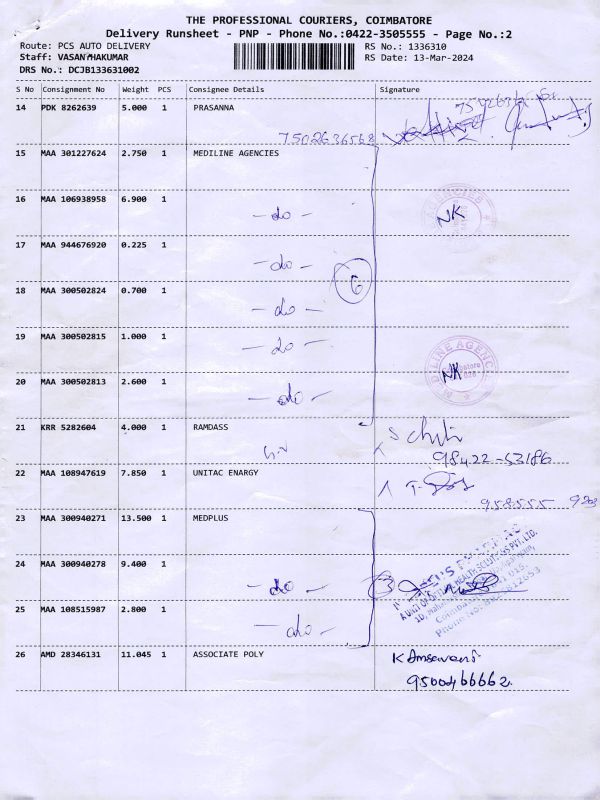 THE PROFESSIONAL COURIERS, COIMBATORE
Delivery Runsheet - PNP - Phone No.:0422-3505555 - Page No.:2
Route: PCS AUTO DELIVERY RS No.: 1336310
Staff: VASANTHAKUMAR RS Date: 13-Mar-2024
DRS No.: DCJB133631002
S No Consignment No Weight PCS Consignee Details Signature
14 PDK 8262639 5.000 1 PRASANNA
7502636568
15 MAA 301227624 2.750 1 MEDILINE AGENCIES
16 MAA 106938958 6.900 1
- do - NK
17 MAA 944676920 0.225 1
- do - 6
18 MAA 300502824 0.700 1
- do -
19 MAA 300502815 1.000 1
- do -
20 MAA 300502813 2.600 1
- do - NK
21 KRR 5282604 4.000 1 RAMDASS
98422-53186
22 MAA 108947619 7.850 1 UNITAC ENARGY
958555
23 MAA 300940271 13.500 1 MEDPLUS
24 MAA 300940278 9.400 1
- do - 3
25 MAA 108515987 2.800 1
- do -
26 AMD 28346131 11.045 1 ASSOCIATE POLY
9500466662